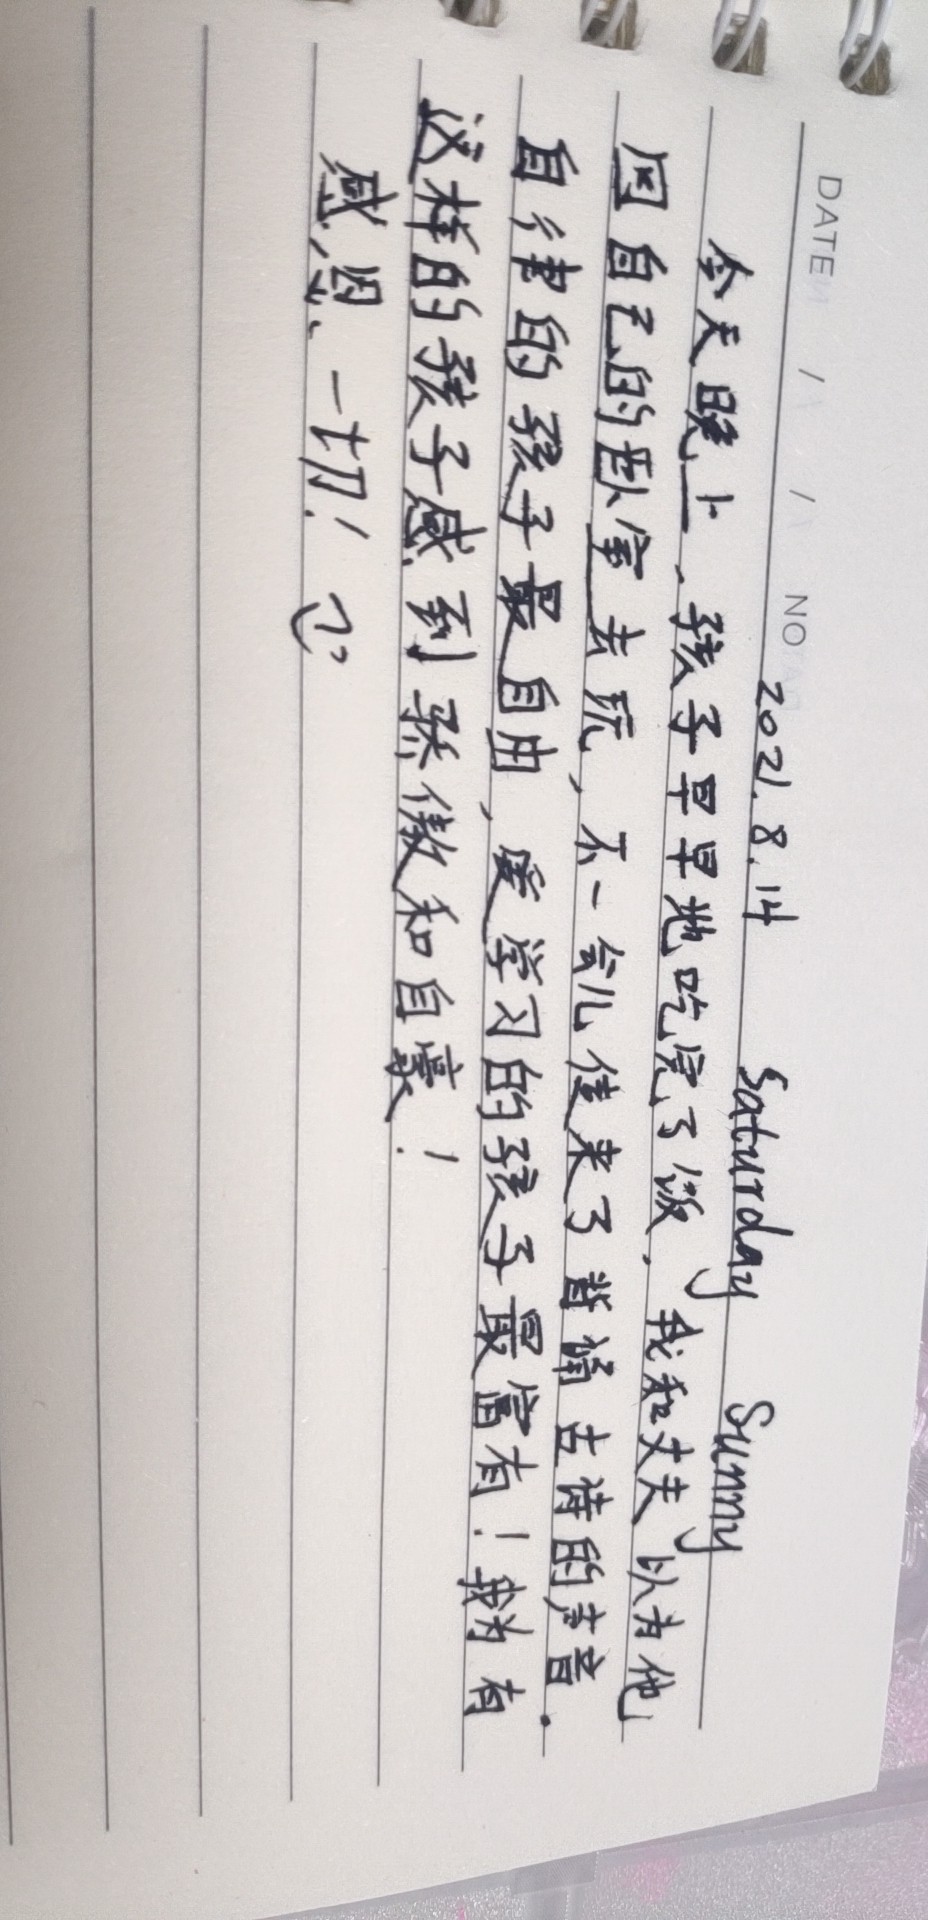 DATE / / NO
2021.8.14 Saturday Sunny
今天晚上、孩子早早地吃完了饭，我和丈夫以为他
回自己的卧室去玩，不一会儿传来了背诵古诗的声音.
自律的孩子最自由、爱学习的孩子最富有！我为有
这样的孩子感到骄傲和自豪！
感恩一切！